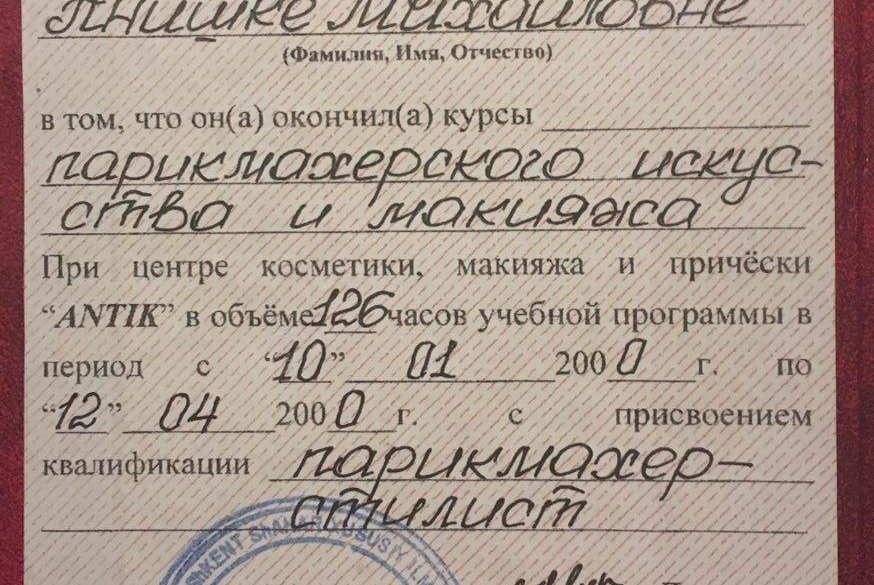 Янишке Михайловне
(Фамилия, Имя, Отчество)
в том, что он(а) окончил(а) курсы
парикмахерского искус-
ства и макияжа
При центре косметики, макияжа и причёски
“ANTIK” в объёме 126 часов учебной программы в
период с “10” 01 2000 г. по
“12” 04 2000 г. с присвоением
квалификации парикмахер-
стилист
SHKENT SHAHAR XUSUSIY